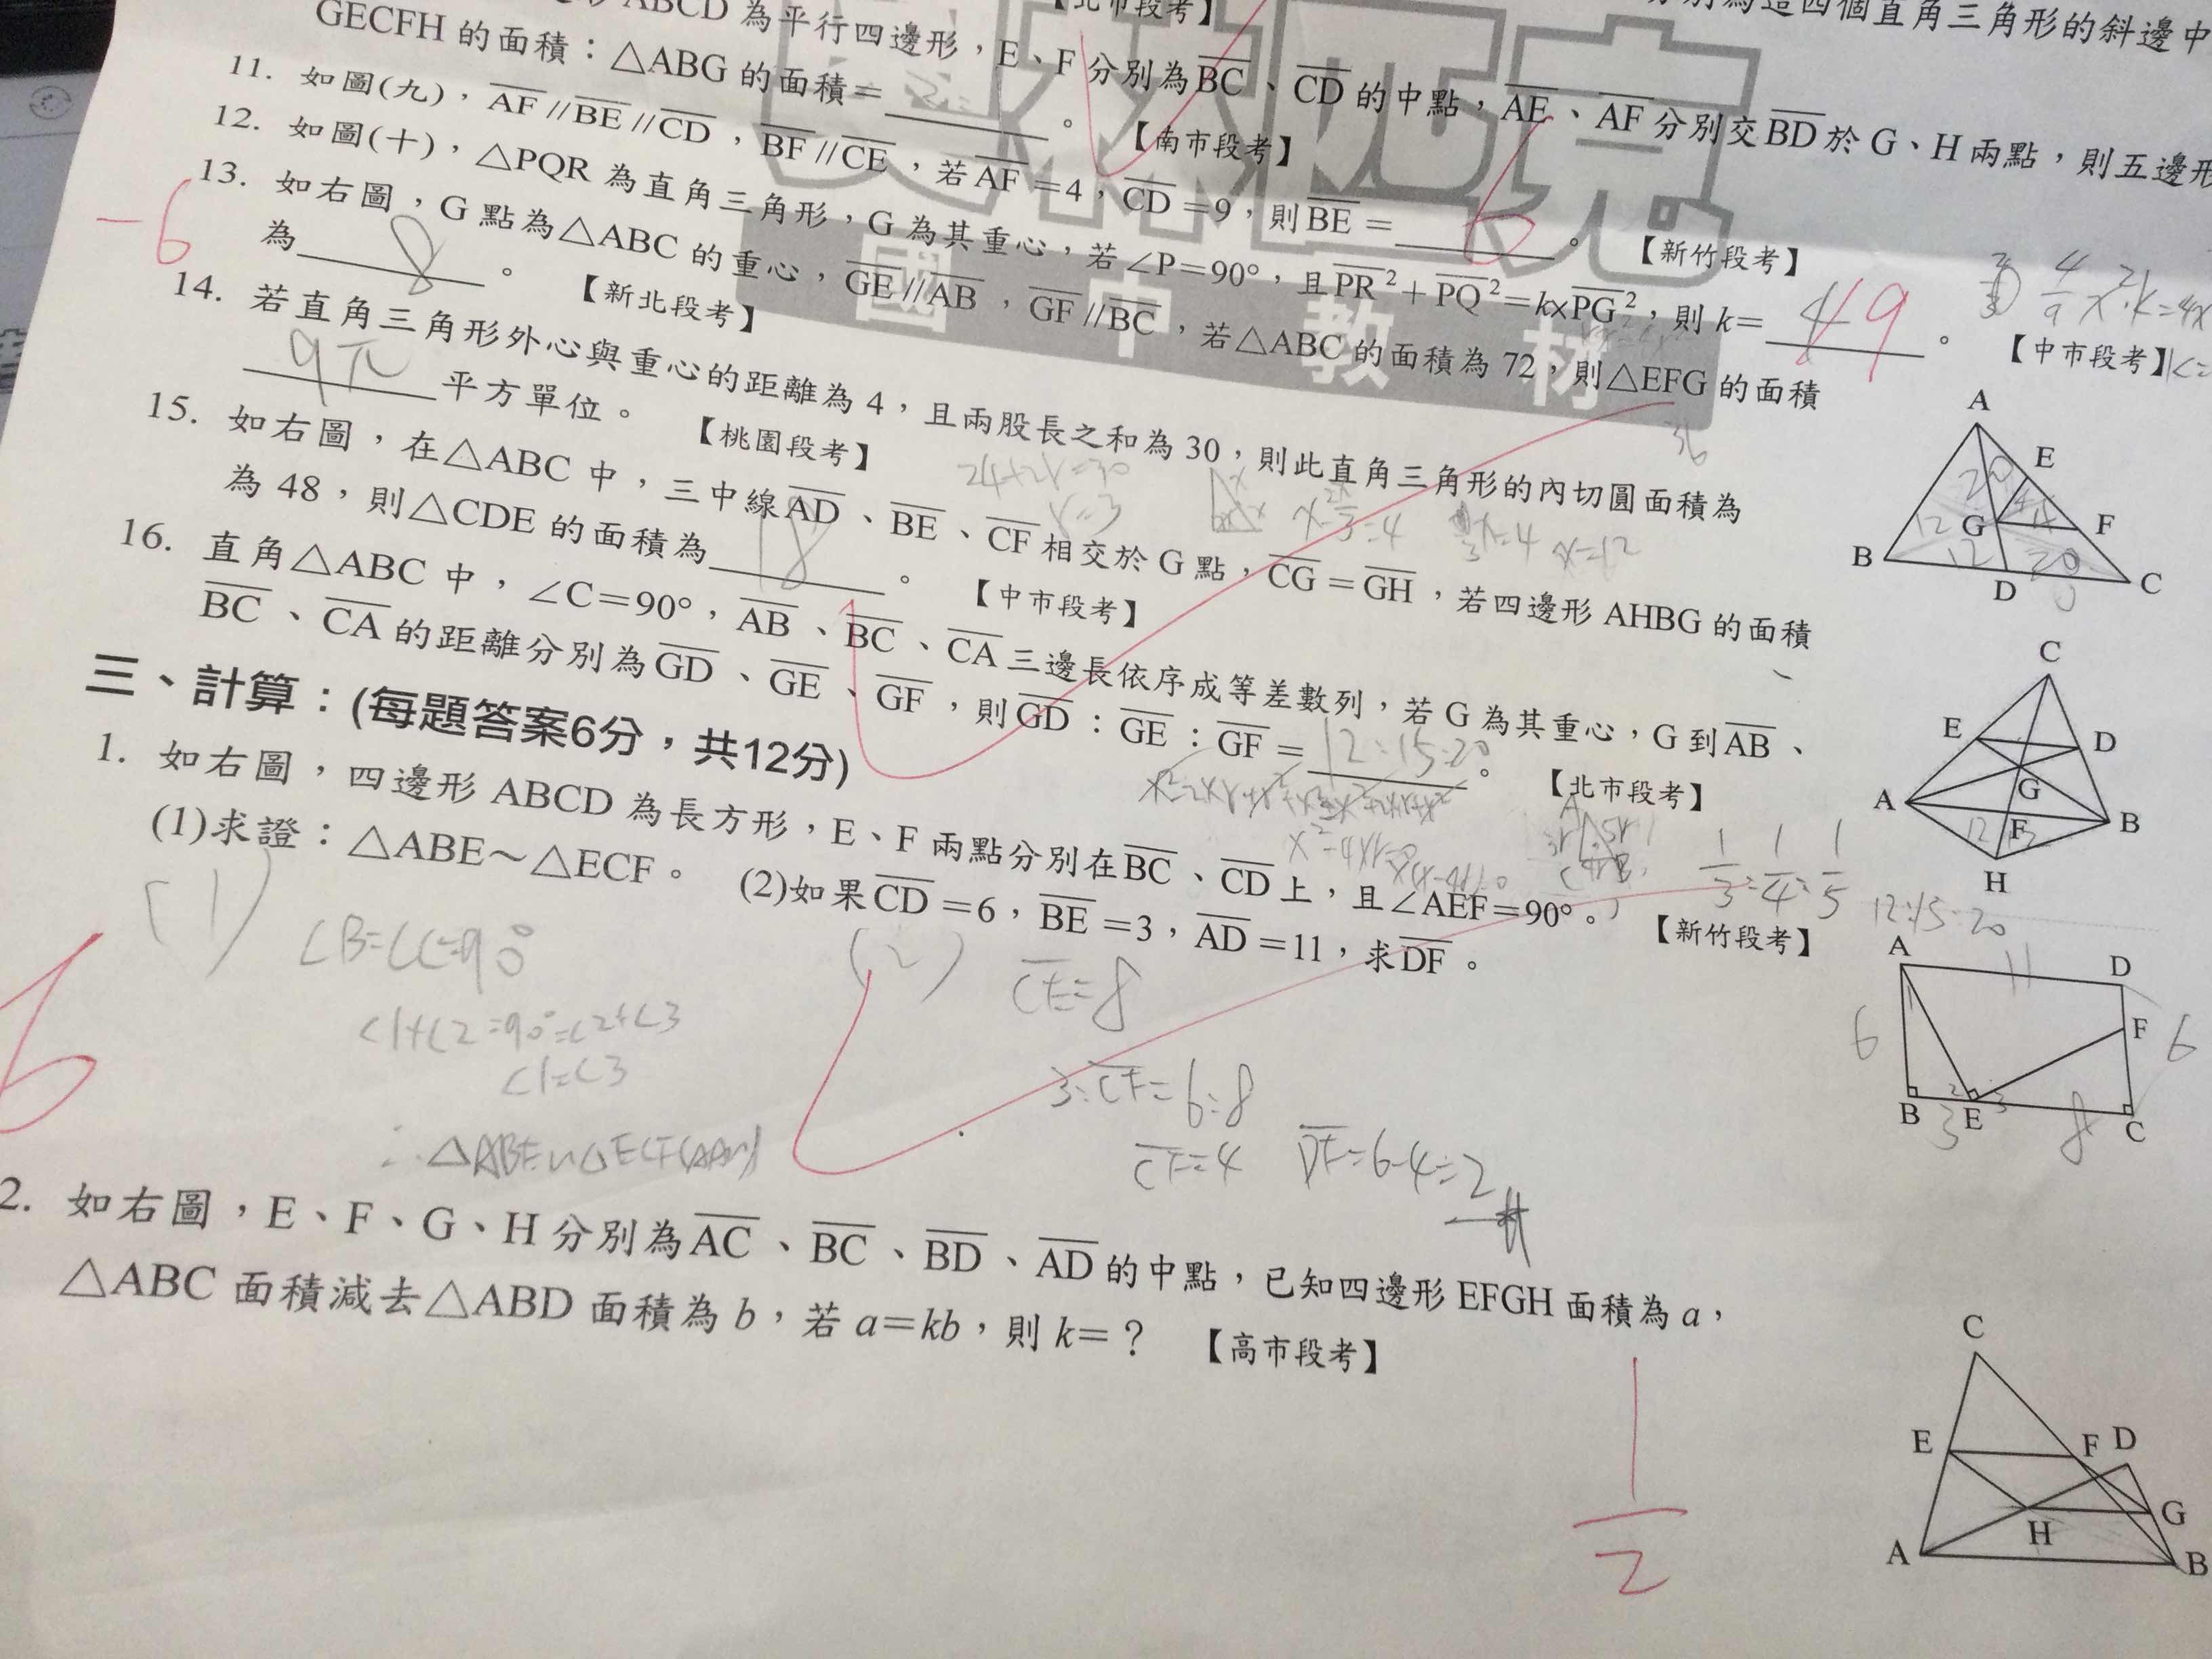 ABCD 為平行四邊形，E、F 分別為BC、CD 的中點，AE、AF 分別交BD於 G、H 兩點，則五邊形
GECFH 的面積：△ABG 的面積=＿＿＿。【南市段考】
11. 如圖(九)，AF//BE//CD，BF//CE，若AF=4，CD=9，則BE= 6 。【新竹段考】
12. 如圖(十)，△PQR 為直角三角形，G 為其重心，若∠P=90°，且PR²+PQ²=k×PG²，則 k= 9 。【中市段考】
13. 如右圖，G 點為△ABC 的重心，GE//AB，GF//BC，若△ABC 的面積為 72，則△EFG 的面積
為 8 。【新北段考】
14. 若直角三角形外心與重心的距離為 4，且兩股長之和為 30，則此直角三角形的內切圓面積為
9π 平方單位。【桃園段考】
24+2r=30
r=3
x=12
15. 如右圖，在△ABC 中，三中線AD、BE、CF相交於 G 點，CG=GH，若四邊形 AHBG 的面積
為 48，則△CDE 的面積為 18 。【中市段考】
16. 直角△ABC 中，∠C=90°，AB、BC、CA三邊長依序成等差數列，若 G 為其重心，G 到AB、
BC、CA的距離分別為GD、GE、GF，則GD：GE：GF= 12:15:20 。【北市段考】
1/3:1/4:1/5
12:15:20
三、計算：(每題答案6分，共12分)
1. 如右圖，四邊形 ABCD 為長方形，E、F 兩點分別在BC、CD上，且∠AEF=90°。
(1)求證：△ABE～△ECF。 (2)如果CD=6，BE=3，AD=11，求DF。【新竹段考】
(1)
∠B=∠C=90°
∠1+∠2=90°=∠2+∠3
∠1=∠3
∴△ABE~△ECF(AA~)
(2)
CE=8
3:CF=6:8
CF=4 DF=6-4=2
2. 如右圖，E、F、G、H 分別為AC、BC、BD、AD的中點，已知四邊形 EFGH 面積為 a，
△ABC 面積減去△ABD 面積為 b，若 a=kb，則 k=？【高市段考】
1/2
-6
6
國中教材
A
E
G
F
B
D
C
C
E
D
G
A
F
B
H
A
11
D
F
6
6
B
3
E
8
C
C
E
F D
H
G
A
B